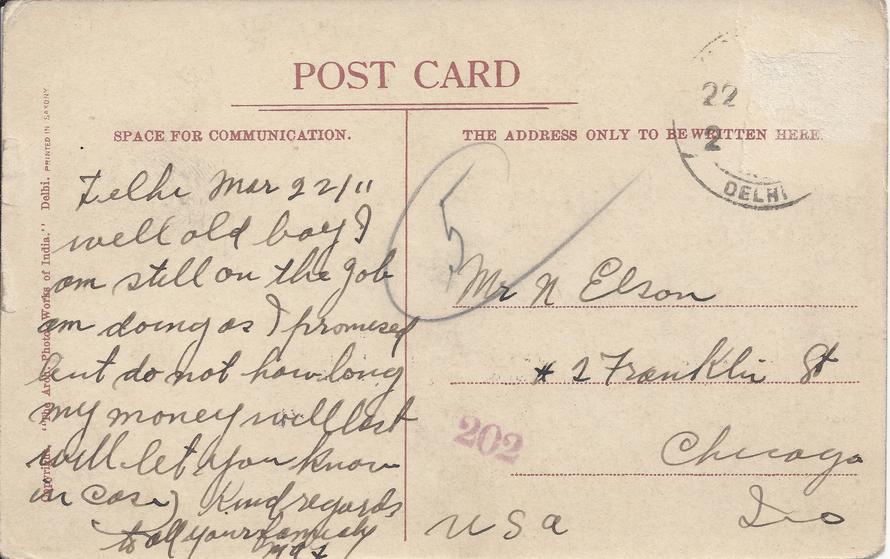 POST CARD
SPACE FOR COMMUNICATION.
THE ADDRESS ONLY TO BE WRITTEN HERE.
Delhi Mar 22/11
well old boy I
am still on the job
am doing as I promised
but do not how long
my money will last
will let you know
in case) Kind regards
to all your family
Mr N Elson
# 2 Franklin St
Chicago
USA
5
202
22
2
DELHI
Copyright. "The Arch. Photo-Works of India." Delhi. PRINTED IN SAXONY